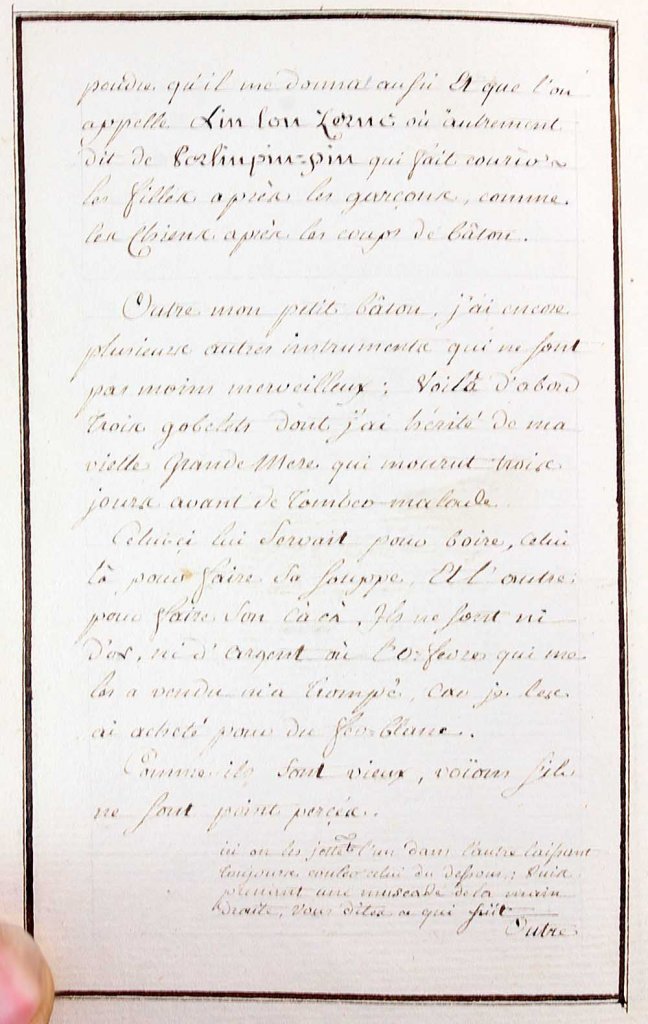 poudre qu'il me donna aussi Et que l'on
appelle Lin lon Zerne où autrement
dit de Perlinpin-pin qui fait courir
les filles après les garçons, comme
les Chiens après les coups de bâton.
Outre mon petit bâton, j'ai encore
plusieurs autres instruments qui ne sont
pas moins merveilleux; Voilà d'abord
trois gobelets dont j'ai hérité de ma
vielle Grande Mere qui mourut trois
jours avant de tomber malade.
Celui-çi lui Servait pour boire, celui
là pour faire Sa Souppe, Et l'autre
pour faire Son càcà, Ils ne sont ni
d'or, ni d'Argent où l'Orfevre qui me
les a vendu m'a trompé, car je les
ai acheté pour du fer-blanc.
Comme ils Sont vieux, voïons S'ils
ne Sont point percés.
ici on les jette l'un dans l'autre laissant
toujours couler celui du dessous; Puis
prenant une muscade de la main
droite, Vous dites ce qui Süit
Outre